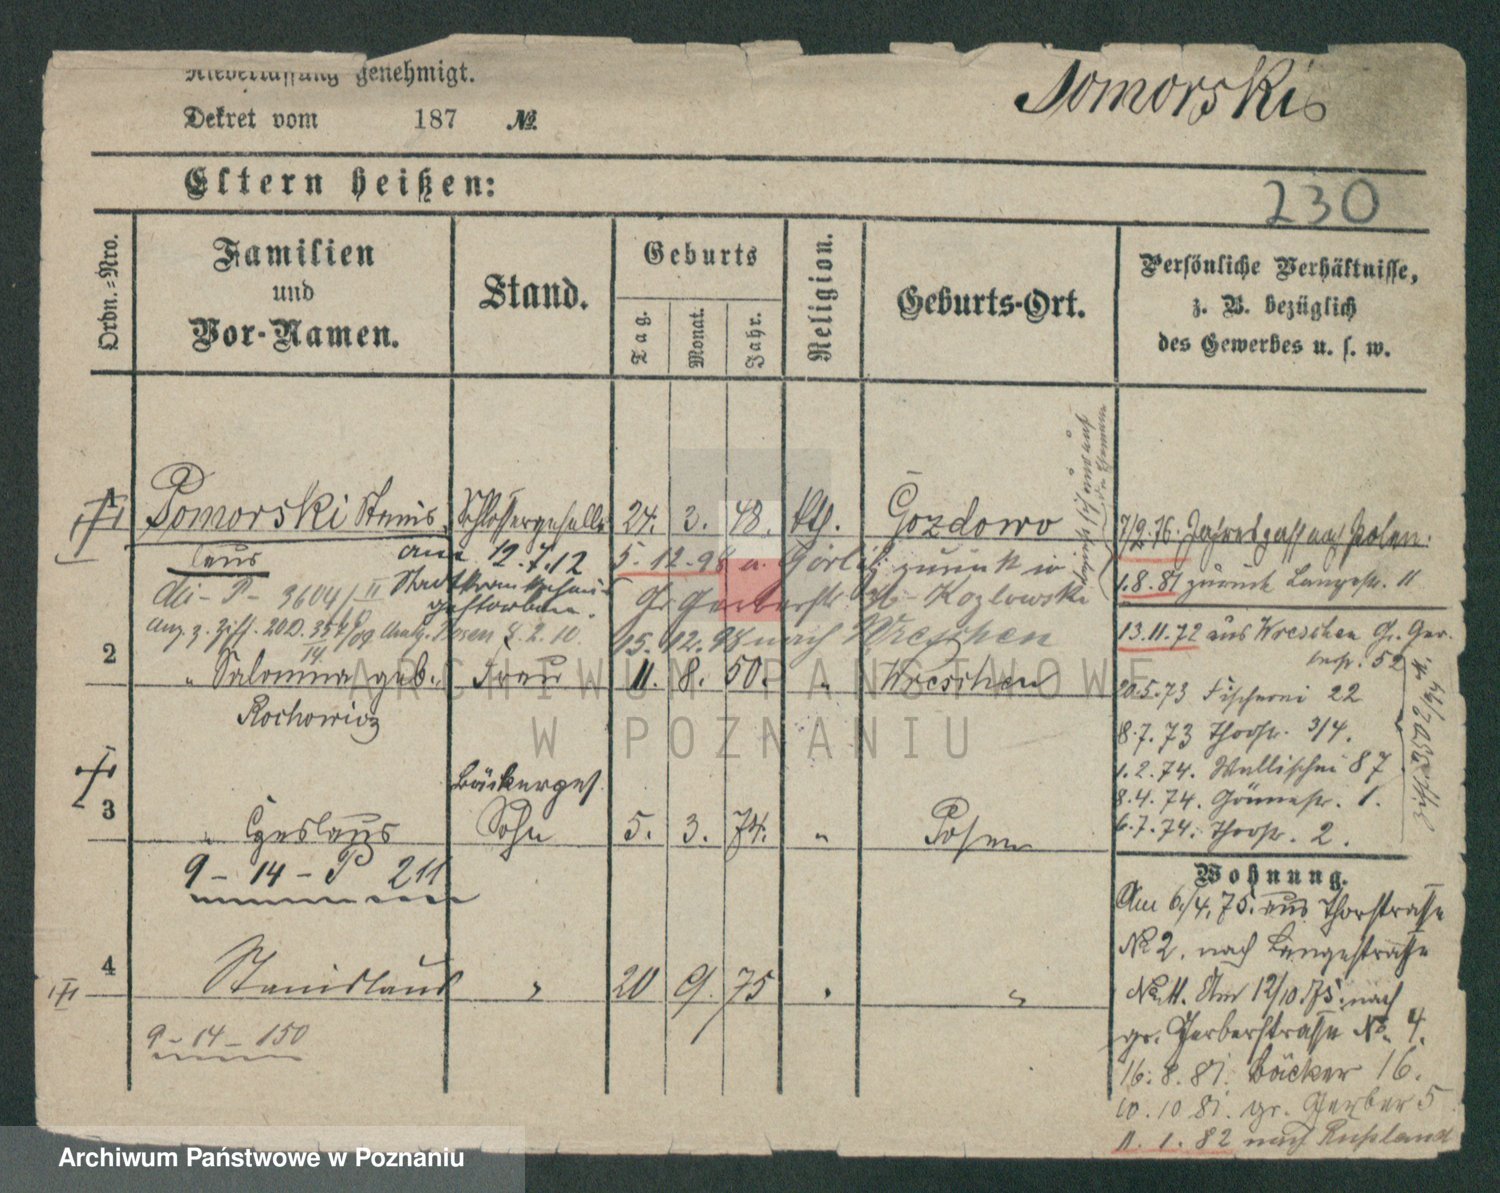 Niederlassung genehmigt.
Dekret vom 187 №
Pomorski
Eltern heißen:
230
Ordn.-Nro.
Familien
und
Vor-Namen.
Stand.
Geburts
Tag.
Monat.
Jahr.
Religion.
Geburts-Ort.
Persönliche Verhältnisse,
z. B. bezüglich
des Gewerbes u. s. w.
1
Pomorski Stanis
laus
Schlossergeselle
24. 3. 48. kth. Gozdowo
am 12.7.12
Stadtkrankenhaus
gestorben.
5.12.98 a. Görlitz zurück in
Gr. Gerberstr. Kozlowski
15.12.98 nach Wreschen
2
" Salomea geb. Frau 11. 8. 50. " Wreschen
Rochowicz
3
Bäckerges.
" Czeslaus Sohn 5. 3. 74. " Posen
9 - 14 - P 211
4
Stanislaus " 20 9. 75 " "
9 - 14 - 150
7/2.76. nach Polen.
1.8.81 zurück Langestr. 11
13.11.72 aus Wreschen Gr. Ger
berstr. 52
20.5.73 Fischerei 22
8.7.73 Thorstr. 3/4.
1.2.74. Wallischei 87
8.4.74. 1.
6.7.74. Thorstr. 2.
Wohnung.
Am 6/4.75. aus Thorstrasse
No 2. nach Langestrasse
No. 11. Am 12/10.75. nach
gr. Gerberstrasse No. 4.
16.8.81. Bäcker 16.
10.10 81. gr. Gerber 5
11.1.82 nach Russland
ARCHIWUM PAŃSTWOWE
W POZNANIU
Archiwum Państwowe w Poznaniu